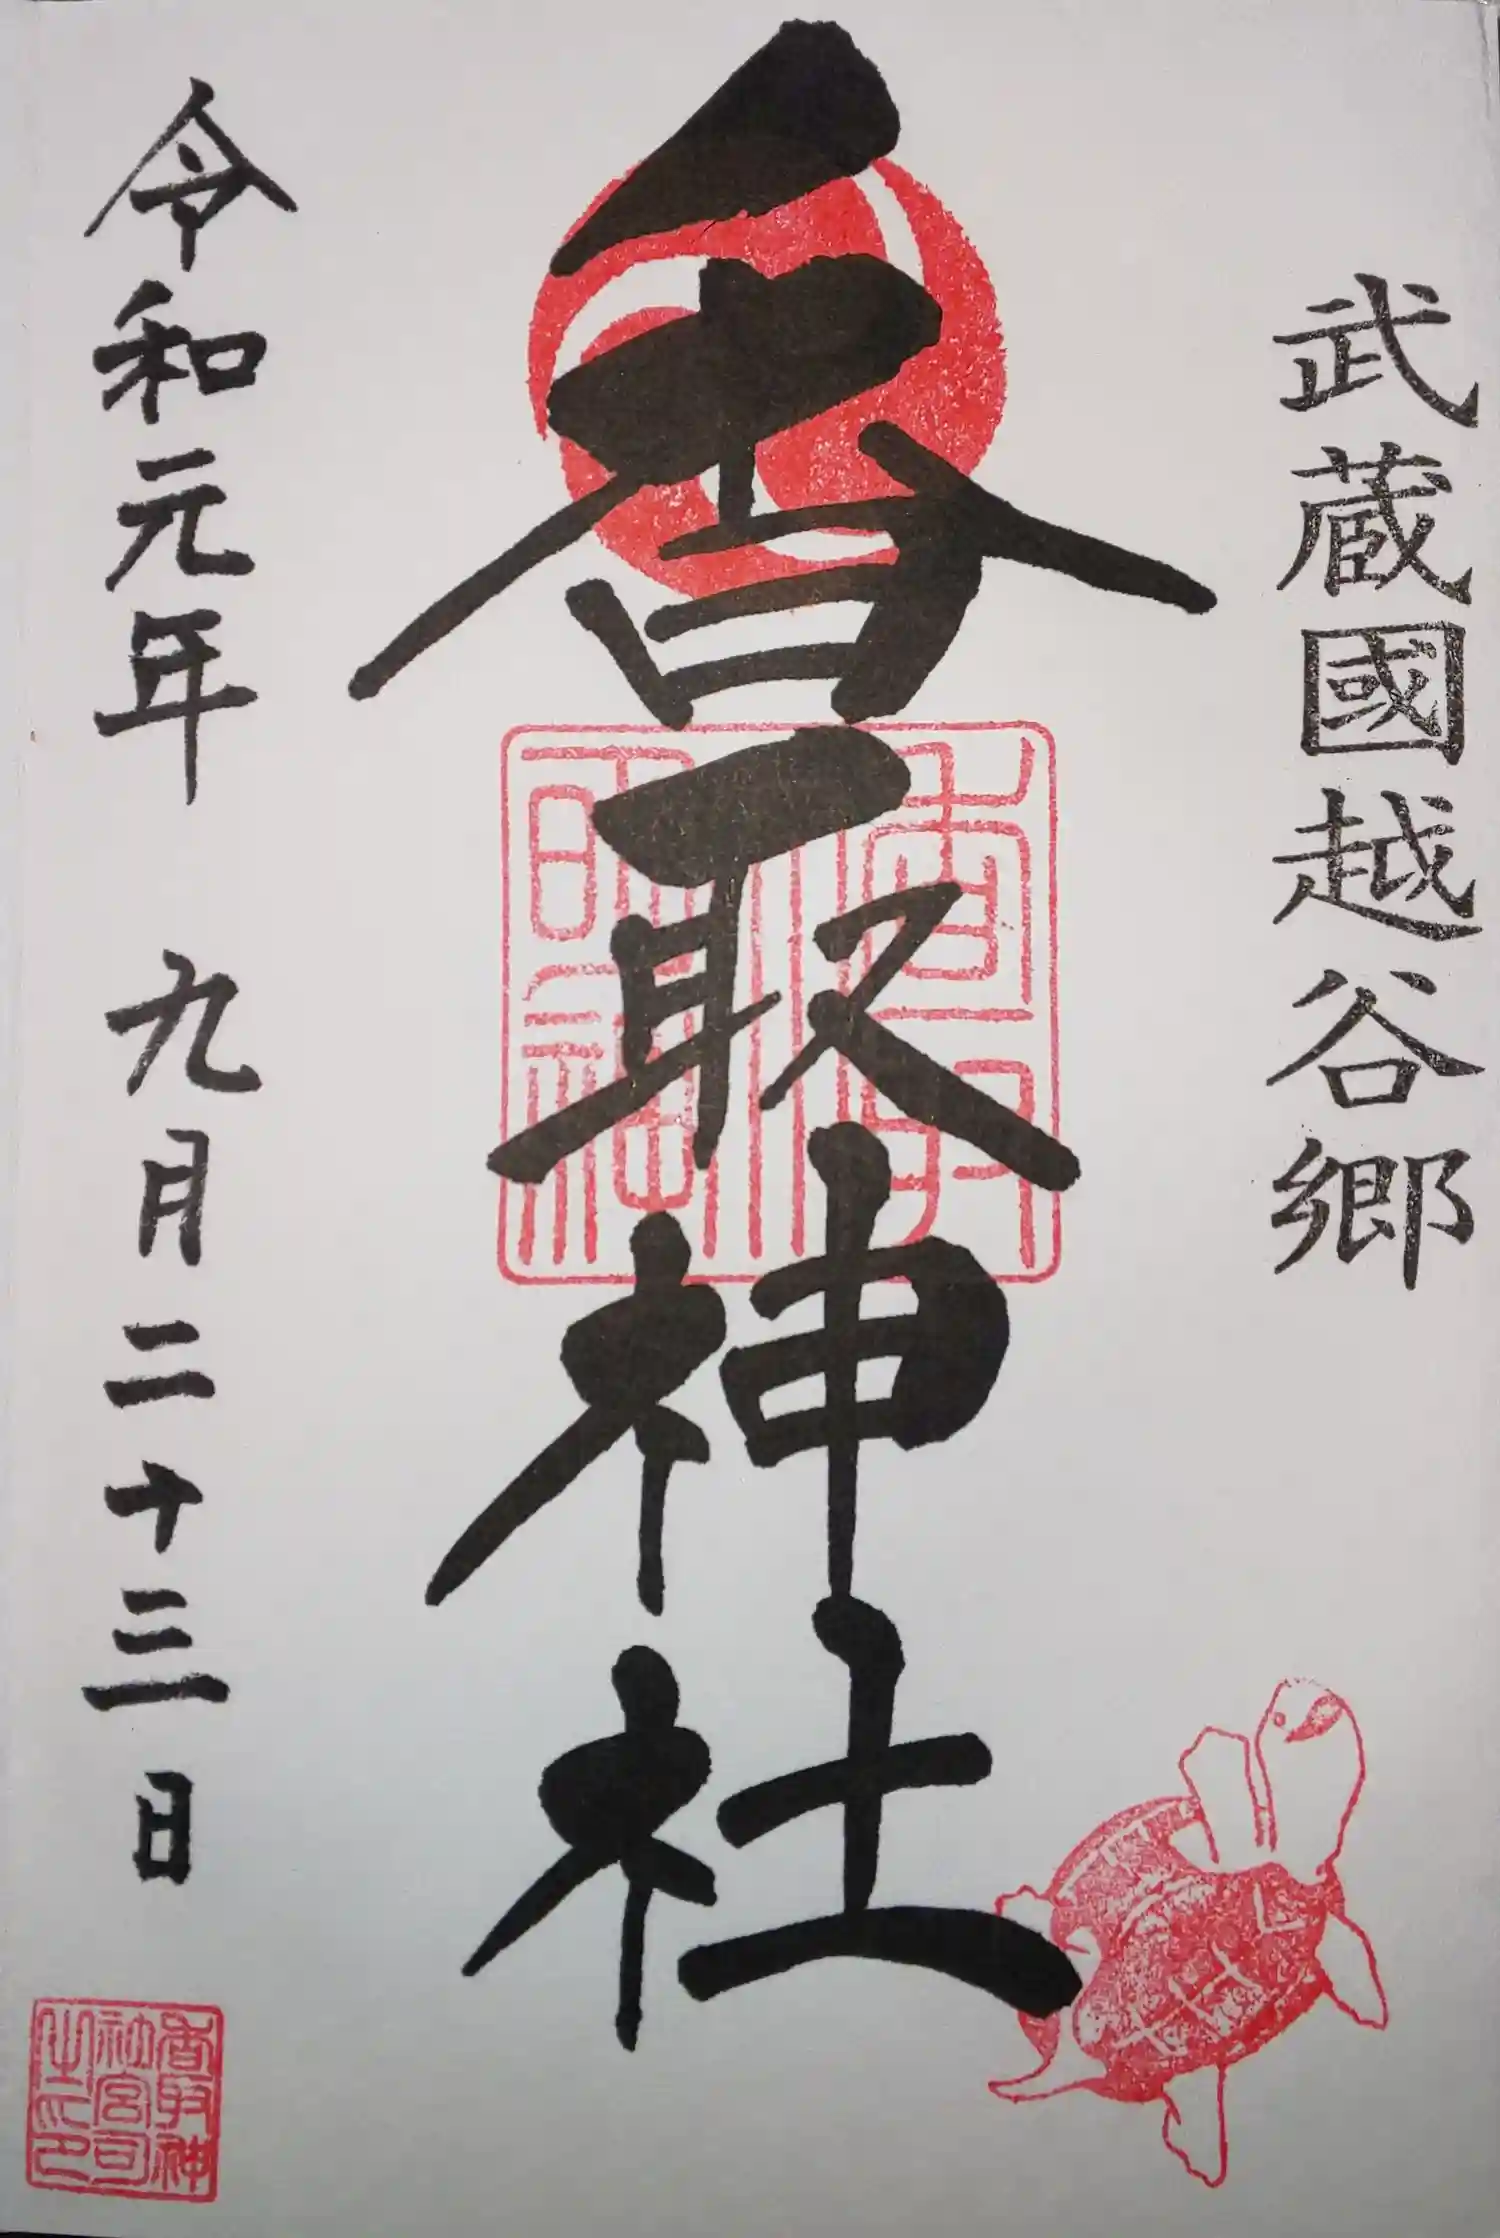 武蔵國越谷郷
香取神社
令和元年 九月二十三日
香取神
社宮司
之印